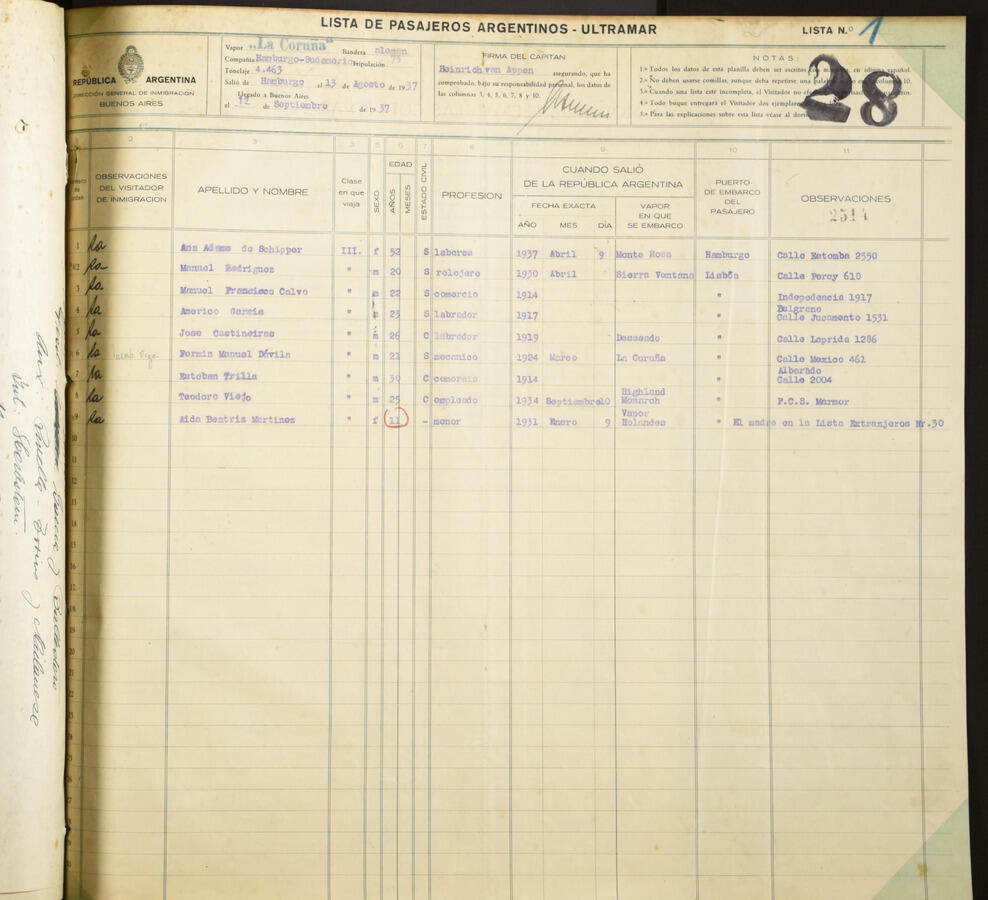 LISTA DE PASAJEROS ARGENTINOS - ULTRAMAR
LISTA N.º 1
28
REPÚBLICA ARGENTINA
DIRECCIÓN GENERAL DE INMIGRACIÓN
BUENOS AIRES
Vapor „La Coruña” Bandera aleman
Compañía Hamburgo-Sudamerica Tripulación 73
Tonelaje 4.463
Salió de Hamburgo el 13 de Agosto de 1937
Llegado a Buenos Aires
el 12 de Septiembre de 1937
FIRMA DEL CAPITAN
Heinrich van Appen asegurando, que ha
comprobado, bajo su responsabilidad personal, los datos de
las columnas 3, 4, 5, 6, 7, 8 y 10.
NOTAS:
1.ª Todos los datos de esta planilla deben ser escritos en idioma español.
2.ª No deben usarse comillas, aunque deba repetirse una 10.
3.ª Cuando una lista esté incompleta, el Visitador no
4.ª Todo buque entregará el Visitador dos ejemplares
5.ª Para las explicaciones sobre esta lista véase al dorso
2 3 3 5 6 7 8 9 10 11
OBSERVACIONES DEL VISITADOR DE INMIGRACION
APELLIDO Y NOMBRE
Clase en que viaja
SEXO
EDAD
AÑOS
MESES
ESTADO CIVIL
PROFESION
CUANDO SALIÓ DE LA REPÚBLICA ARGENTINA
FECHA EXACTA
AÑO MES DÍA
VAPOR EN QUE SE EMBARCO
PUERTO DE EMBARCO DEL PASAJERO
OBSERVACIONES
2511
1 la Ana Adams de Schipper III. f 52 S labores 1937 Abril 9 Monte Rosa Hamburgo Calle Estomba 2550
2 la Manuel Rodriguez " m 20 S relojero 1930 Abril Sierra Ventana Lisbôa Calle Percy 610
3 la Manuel Francisco Calvo " m 22 S comercio 1914 " Independencia 1917
4 la Americo Garcia " 23 S labrador 1917 " Belgrano
Calle Jucamento 1531
5 la Jose Castineiras " m 26 C labrador 1919 Deseado " Calle Laprida 1286
6 la Fermin Manuel Dávila " m 21 S mecanico 1924 Marco La Coruña " Calle Mexico 461
7 la Esteban Trilla " m 30 C comercio 1914 " Albarado
Calle 2004
8 la Teodoro Viejo " m 25 C empleado 1934 Septiembre 10 Highland Monarch " F.C.S. Marmor
9 la Aida Beatriz Martinez " f 11 - menor 1931 Enero 9 Vapor Holandes " El madre en la Lista Extranjeros Nr. 30
10
11
12
13
14
15
16
17
18
19
20
21
22
23
24
25
26
27
28
29
30